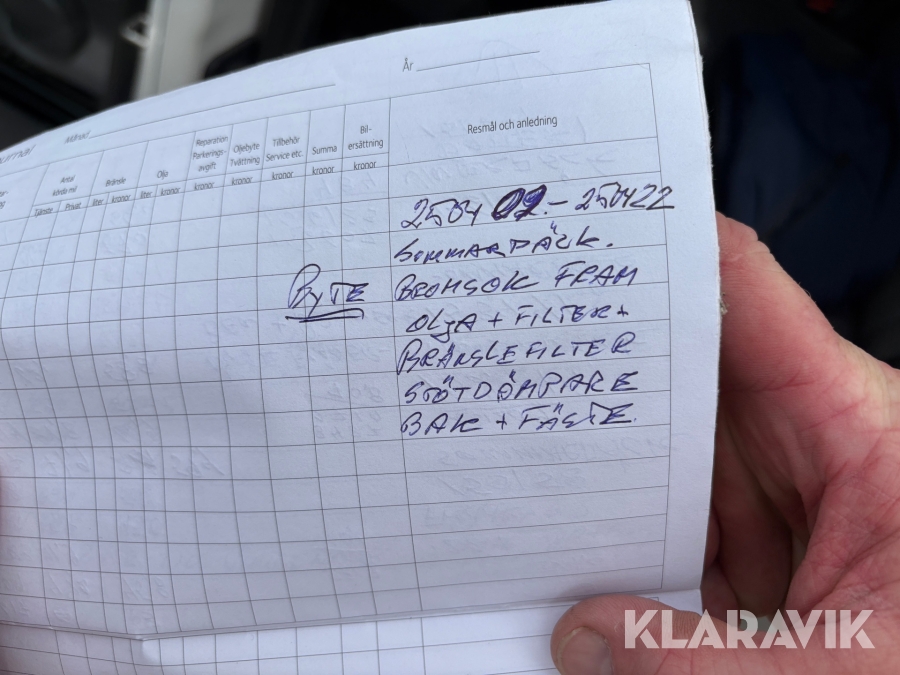 År
Månad
Resmål och anledning
Bil-
ersättning
kronor
Summa
kronor
Tillbehör
Service etc.
kronor
Oljebyte
Tvättning
kronor
Reparation
Parkerings-
avgift
kronor
Olja
liter kronor
Bränsle
liter kronor
Antal
körda mil
Tjänste Privat
250402.- 250422
SOMMARDÄCK.
BYTE BROMSOK FRAM
OLJA + FILTER +
BRÄNSLEFILTER
STÖTDÄMPARE
BAK + FÄSTE.
KLARAVIK